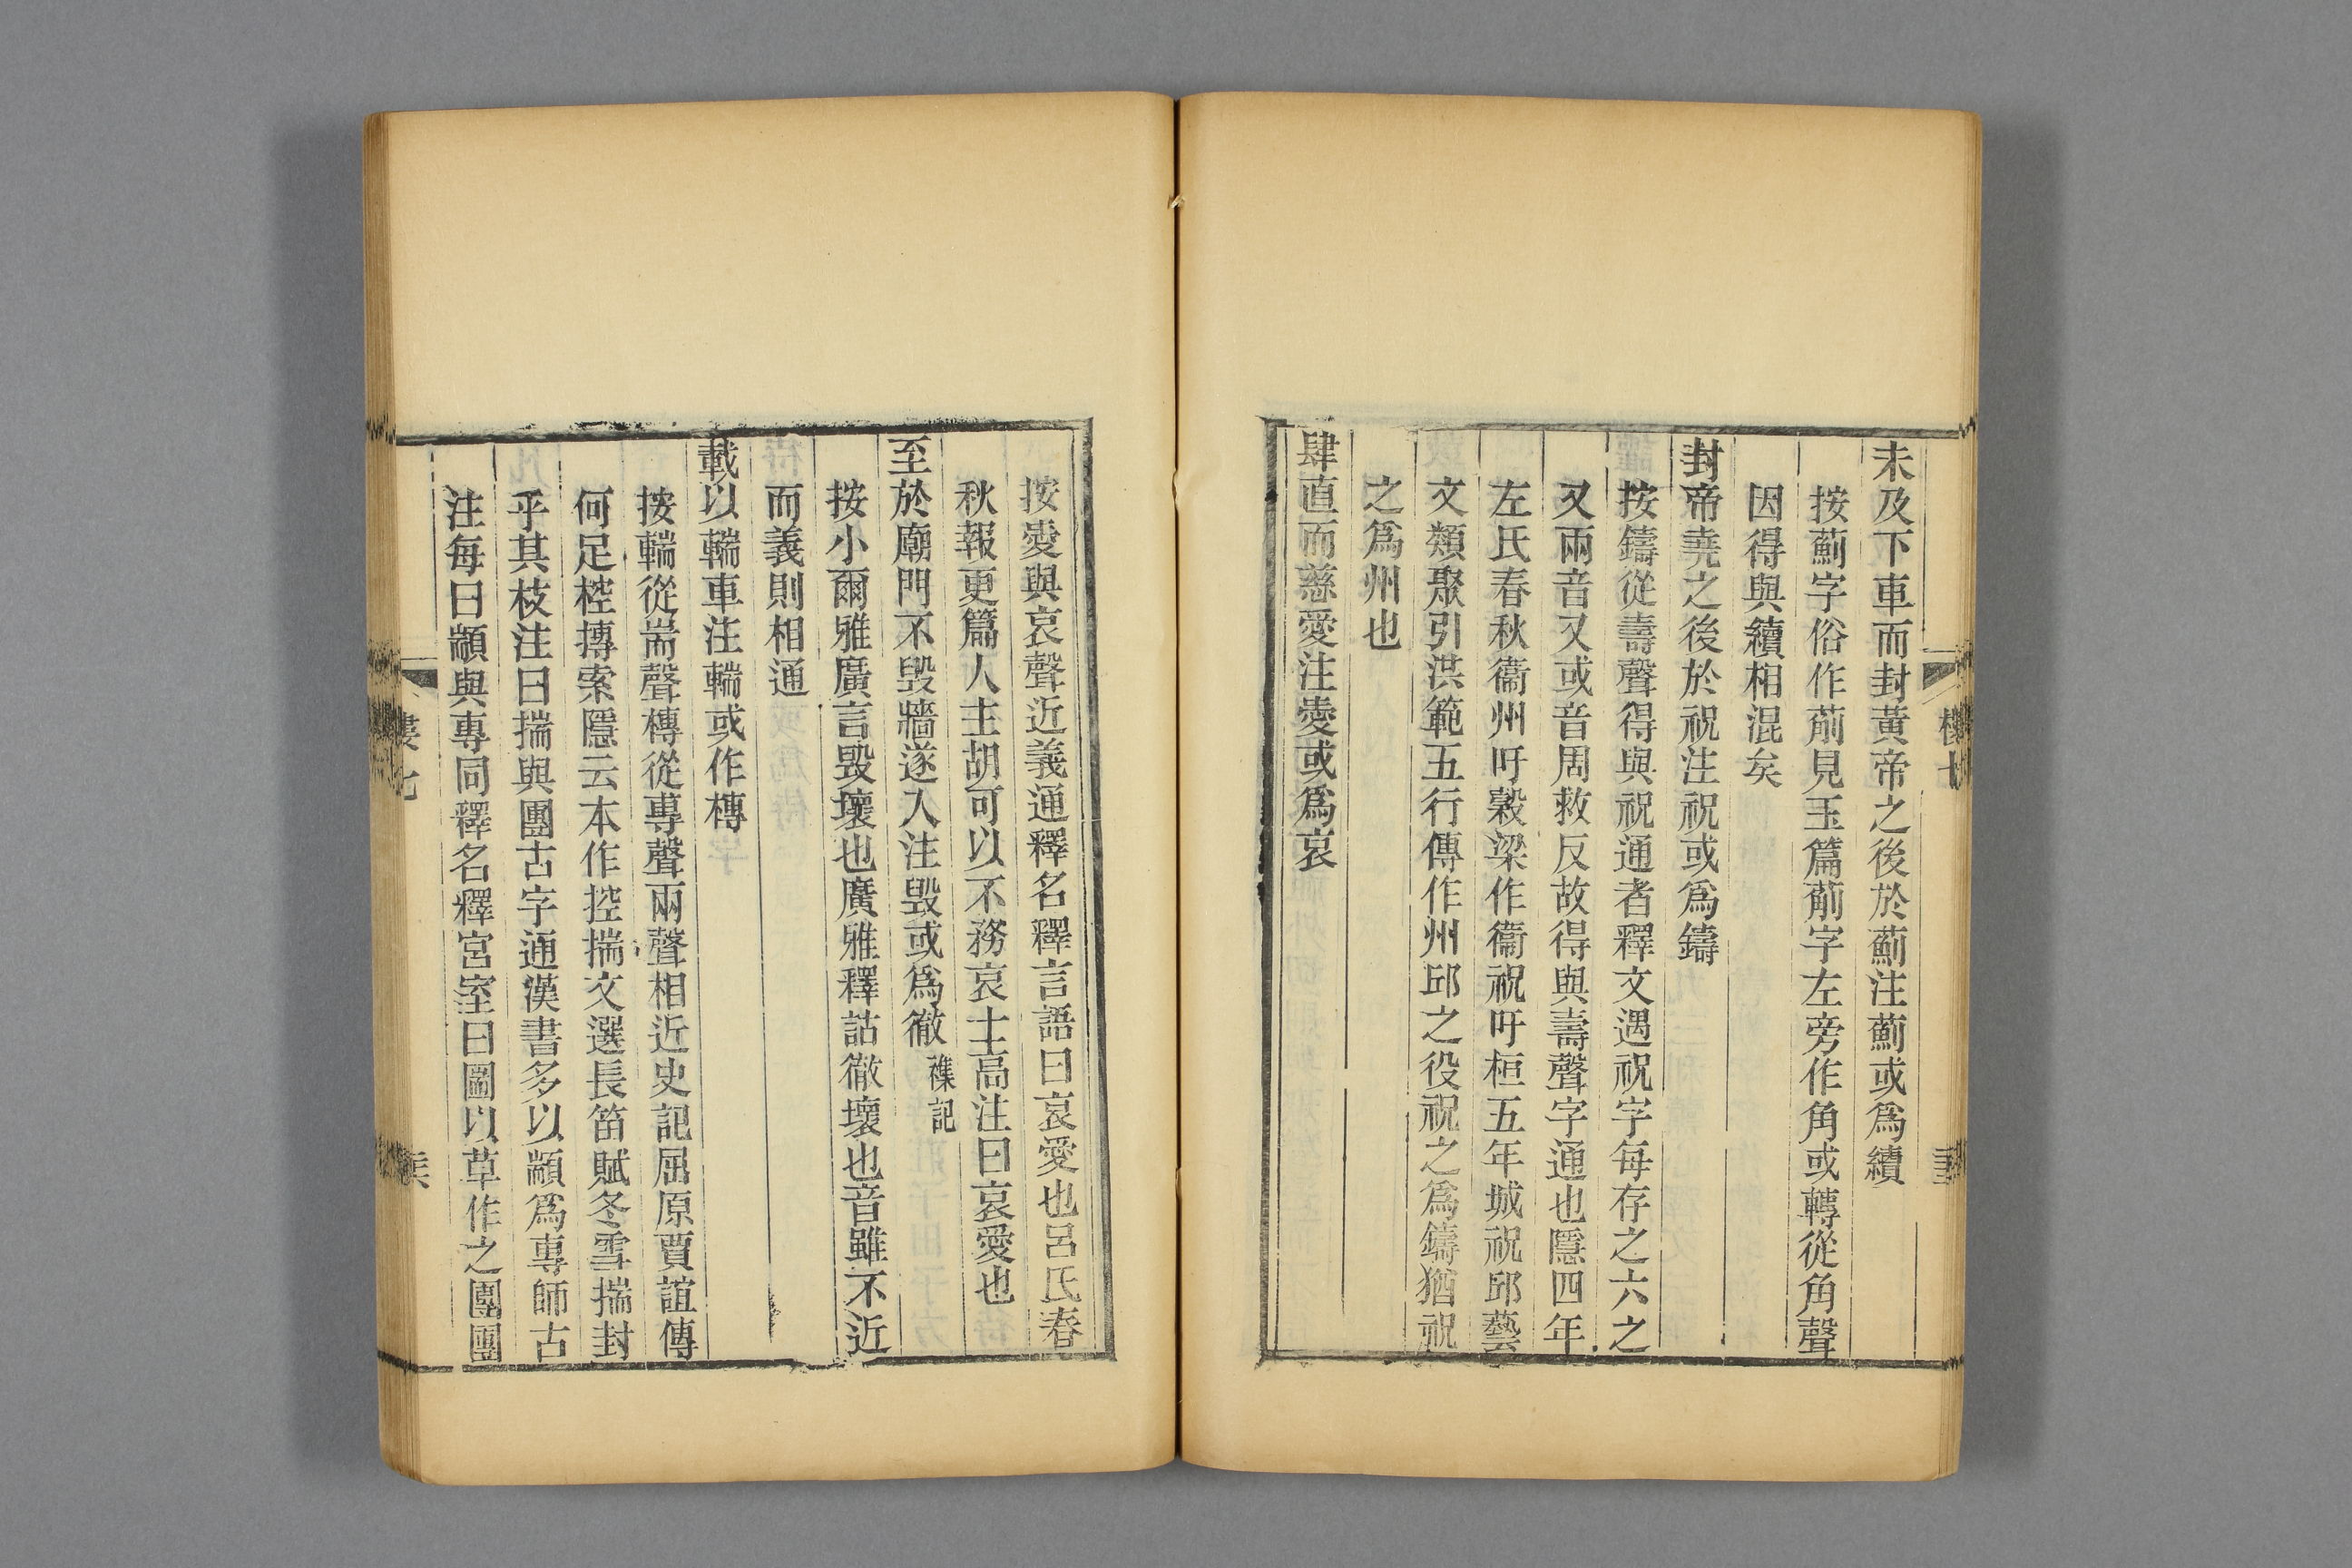 未及下車而封黃帝之後於薊注薊或爲續
按薊字俗作葪見玉篇葪字左旁作角或轉從角聲
因得與續相混矣
封帝堯之後於祝注祝或爲鑄
按鑄從壽聲得與祝通者釋文遇祝字每存之六之
又兩音又或音周救反故得與壽聲字通也隱四年
左氏春秋衞州吁穀梁作衞祝吁桓五年城祝邱藝
文類聚引洪範五行傳作州邱之役祝之爲鑄猶祝
之爲州也
肆直而慈愛注愛或爲哀
按愛與哀聲近義通釋名釋言語曰哀愛也呂氏春
秋報更篇人主胡可以不務哀士高注曰哀愛也
至於廟門不毁牆遂入注毁或爲徹 襍記
按小爾雅廣言毁壞也廣雅釋詁徹壞也音雖不近
而義則相通
載以輲車注輲或作槫
按輲從耑聲槫從專聲兩聲相近史記屈原賈誼傳
何足控摶索隱云本作控揣文選長笛賦冬雪揣封
乎其枝注曰揣與團古字通漢書多以顓爲專師古
注每曰顓與專同釋名釋宮室曰圖以草作之團團